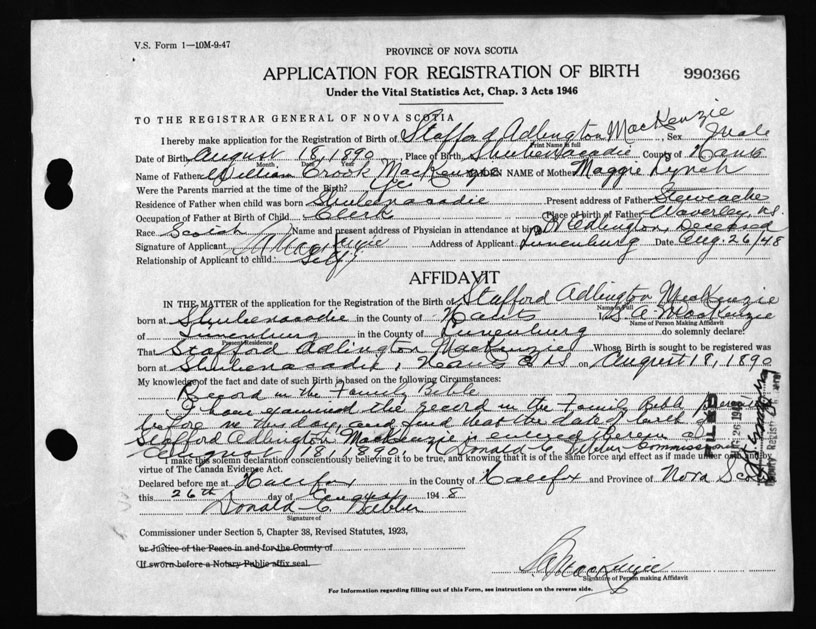 V.S. Form 1—10M-9-47
PROVINCE OF NOVA SCOTIA
APPLICATION FOR REGISTRATION OF BIRTH 990366
Under the Vital Statistics Act, Chap. 3 Acts 1946
TO THE REGISTRAR GENERAL OF NOVA SCOTIA
I hereby make application for the Registration of Birth of Stafford Adlington MacKenzie Sex Male
Print Name in full
Date of Birth August 18, 1890 Place of Birth Shubenacadie County of Hants
Month Day Year
Name of Father William Crook MacKenzie MAIDEN NAME of Mother Maggie Lynch
Were the Parents married at the time of the Birth? Yes
Residence of Father when child was born Shubenacadie Present address of Father Stewiacke
Occupation of Father at Birth of Child Clerk Place of birth of Father Waverley, N.S.
Race Scotish Name and present address of Physician in attendance at birth Dr Adlington, Deceased
Signature of Applicant MacKenzie Address of Applicant Lunenburg Date Aug. 26/48
Relationship of Applicant to child: Self
AFFIDAVIT
IN THE MATTER of the application for the Registration of the Birth of Stafford Adlington MacKenzie
Name in Full
born at Shubenacadie in the County of Hants I, S. A. MacKenzie
Name of Person Making Affidavit
of Lunenburg in the County of Lunenburg do solemnly declare:
Present Residence
That Stafford Adlington MacKenzie Whose Birth is sought to be registered was
born at Shubenacadie, Hants Co NS on August 18, 1890
My knowledge of the fact and date of such Birth is based on the following Circumstances:
Record in the Family Bible
I have examined the record in the Family Bible
before me this day and find that the date of birth of
Stafford Adlington MacKenzie is entered therein
August 18, 1890. Donald C. Webber Commissioner
I make this solemn declaration conscientiously believing it to be true, and knowing that it is of the same force and effect as if made under oath and by
virtue of The Canada Evidence Act.
Declared before me at Halifax in the County of Halifax and Province of Nova Scotia
this 26th day of August 1948
Donald C. Webber
Signature of
Commissioner under Section 5, Chapter 38, Revised Statutes, 1923,
or Justice of the Peace in and for the County of
(If sworn before a Notary Public affix seal.
S A MacKenzie
Signature of Person making Affidavit
For Information regarding filling out of this Form, see instructions on the reverse side.
FILED
26 1948